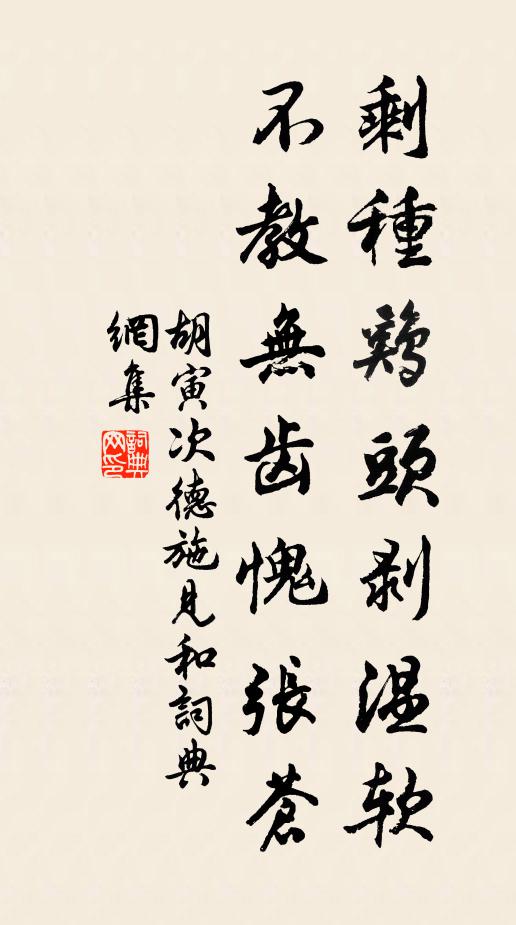 剩種鷄頭剥温軟
不教無齿愧張蒼
胡寅次德施見和詞典
網集
詞典
网印